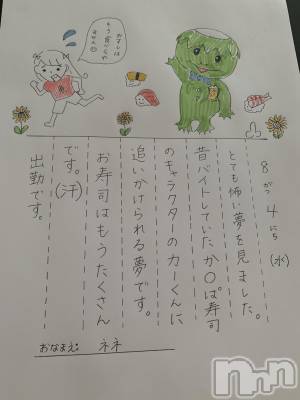 おすしは
もう食べられ
ません😖
8がつ4にち(水)
とても怖い夢を見ました。
昔バイトしていたか〇ぱ寿司
のキャラクターのカーくんに
追いかけられる夢です。
お寿司はもうたくさん
です。(汗)
出勤です。
おなまえ: ネネ
nnn